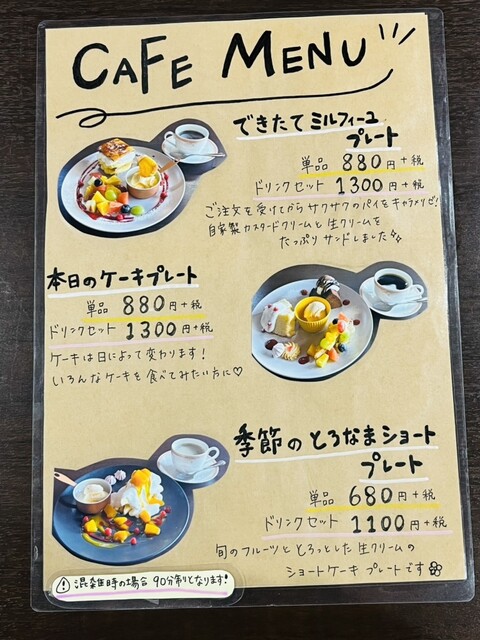 CAFE MENU
できたてミルフィーユ
プレート
単品 880円+税
ドリンクセット 1300円+税
ご注文を受けてからサクサクのパイをキャラメリゼ!
自家製カスタードクリームと生クリームを
たっぷりサンドしました
本日のケーキプレート
単品 880円+税
ドリンクセット 1300円+税
ケーキは日によって変わります!
いろんなケーキを食べてみたい方に♡
季節のとろなまショート
プレート
単品 680円+税
ドリンクセット 1100円+税
旬のフルーツととろっとした生クリームの
ショートケーキプレートです
混雑時の場合 90分制りとなります!